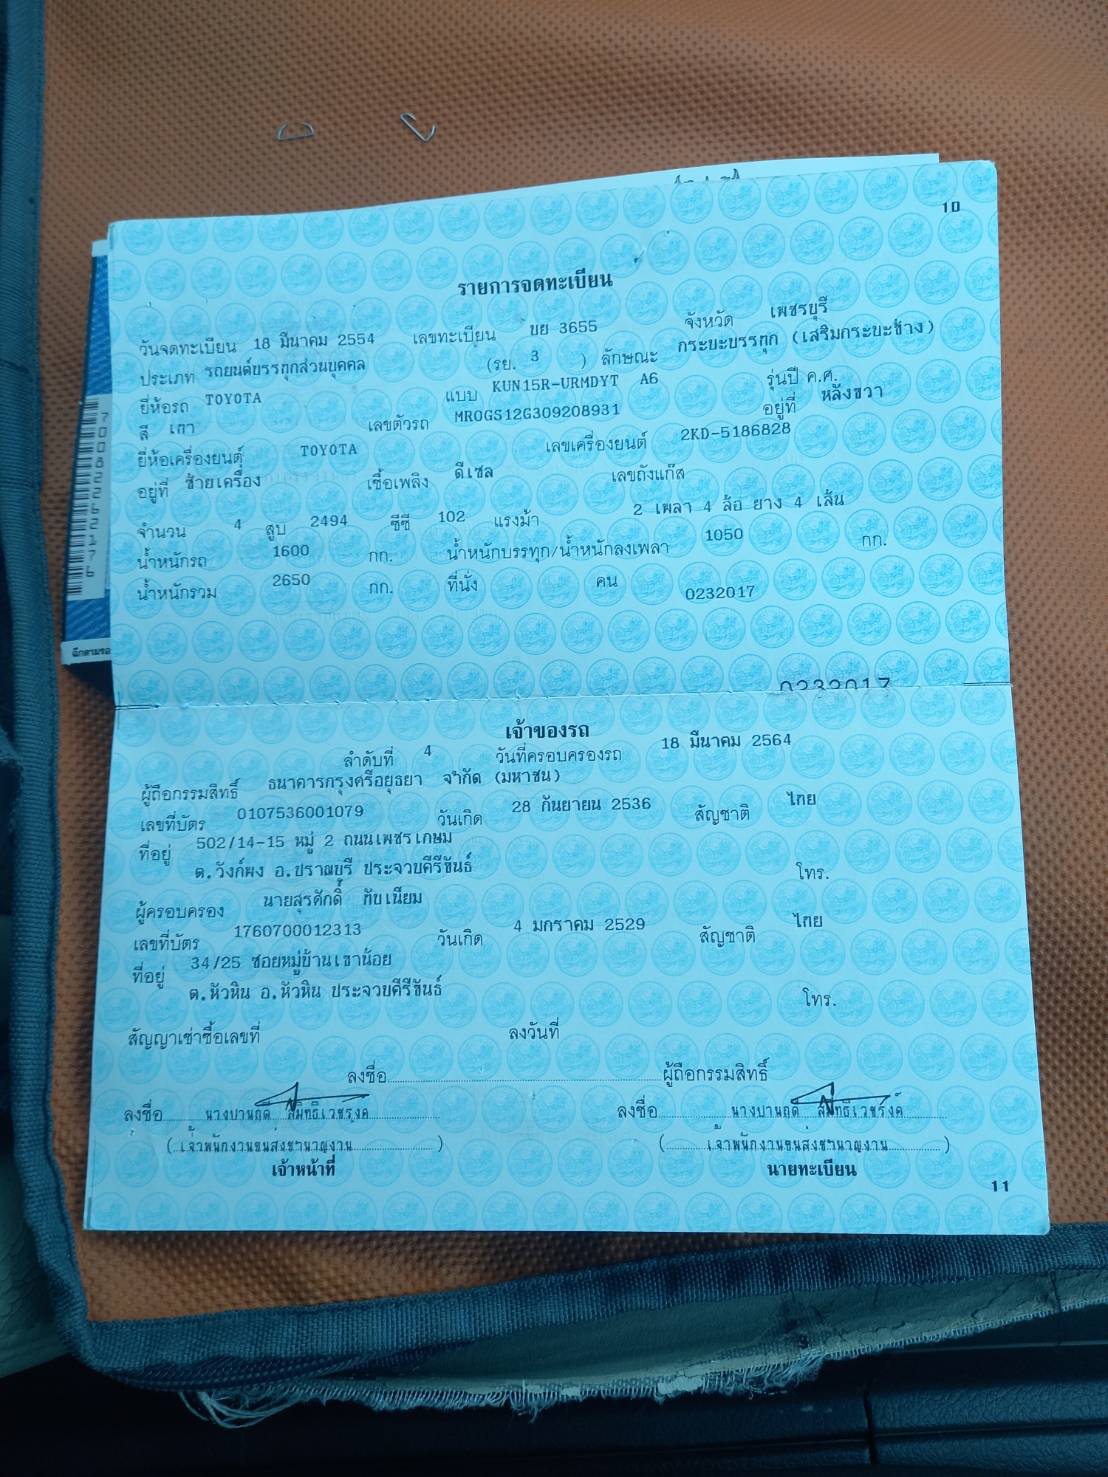 10
รายการจดทะเบียน
วันจดทะเบียน 18 มีนาคม 2554 เลขทะเบียน ขย 3655 จังหวัด เพชรบุรี
ประเภท รถยนต์บรรทุกส่วนบุคคล (รย. 3 ) ลักษณะ กระบะบรรทุก (เสริมกระบะข้าง)
ยี่ห้อรถ TOYOTA แบบ KUN15R-URMDYT A6 รุ่นปี ค.ศ.
สี เทา เลขตัวรถ MR0GS12G309208931 อยู่ที่ หลังขวา
ยี่ห้อเครื่องยนต์ TOYOTA เลขเครื่องยนต์ 2KD-5186828
อยู่ที่ ซ้ายเครื่อง เชื้อเพลิง ดีเซล เลขถังแก๊ส
จำนวน 4 สูบ 2494 ซีซี 102 แรงม้า 2 เพลา 4 ล้อ ยาง 4 เส้น
น้ำหนักรถ 1600 กก. น้ำหนักบรรทุก/น้ำหนักลงเพลา 1050 กก.
น้ำหนักรวม 2650 กก. ที่นั่ง คน 0232017
0232017
เจ้าของรถ
ลำดับที่ 4 วันที่ครอบครองรถ 18 มีนาคม 2564
ผู้ถือกรรมสิทธิ์ ธนาคารกรุงศรีอยุธยา จำกัด (มหาชน)
เลขที่บัตร 0107536001079 วันเกิด 28 กันยายน 2536 สัญชาติ ไทย
ที่อยู่ 502/14-15 หมู่ 2 ถนนเพชรเกษม
ต.วังก์พง อ.ปราณบุรี ประจวบคีรีขันธ์ โทร.
ผู้ครอบครอง นายสุรศักดิ์ ทับเนียม
เลขที่บัตร 1760700012313 วันเกิด 4 มกราคม 2529 สัญชาติ ไทย
ที่อยู่ 34/25 ซอยหมู่บ้านเขาน้อย
ต.หัวหิน อ.หัวหิน ประจวบคีรีขันธ์ โทร.
สัญญาเช่าซื้อเลขที่ ลงวันที่
ลงชื่อ ผู้ถือกรรมสิทธิ์
ลงชื่อ นางปานฤดี ลงชื่อ นางปานฤดี
(เจ้าพนักงานขนส่งชำนาญงาน) (เจ้าพนักงานขนส่งชำนาญงาน)
เจ้าหน้าที่ นายทะเบียน
11